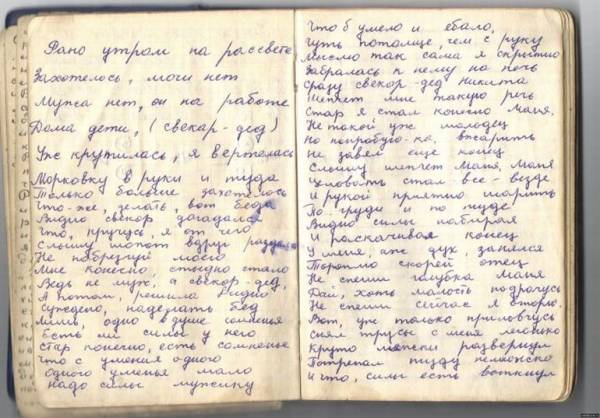 Рано утром на рассвете
Захотелось, мочи нет
Мужа нет, он на работе
Дома дети, (свекар-дед)
Уж крутилась, я вертелась
Морковку в руки и туда
Только больше захотелось
Что-же, делать, вот беда
Видно свекор догадался
Что, мучусь, я от чего
Слышу шопот вдруг
Не побрезгуй моего
Мне конечно стыдно стало
Ведь не муж, а свекар-дед,
А потом, решила видно
Суждено, наделать бед
Лишь, одно в душе сомненье
Есть ли силы у него
Стар конечно, есть сомненье
Что с умения одного
Одного уменья мало
Надо силы мужику
Что б умело и ебало,
Чуть потолще, чем с руку
Мыслю так сама я скрытно
Забралась к нему на ночь
Сразу свекор-дед Никита
Шепчет мне такую речь
Стар я стал конечно Маня,
Не такой уж молодец
Но попробую-ка, вжарить
Не завял еще конец
Слышу шепчет Маня, Маня
Целовать стал все-везде
И рукой приятно шарить
По-груди и по пизде
Видно силы набирая
И раскачивая конец
У меня, аж дух, занялся
Тороплю скорей отец
Не спеши голубка Маня
Дай, хоть малость подрочусь
Не спеши сейчас я вторю.
Вот, уж только приловчусь
Снял трусы с меня легонько
Круто ляжки развернул
Потрепал пизду
И что, силы есть воткнул